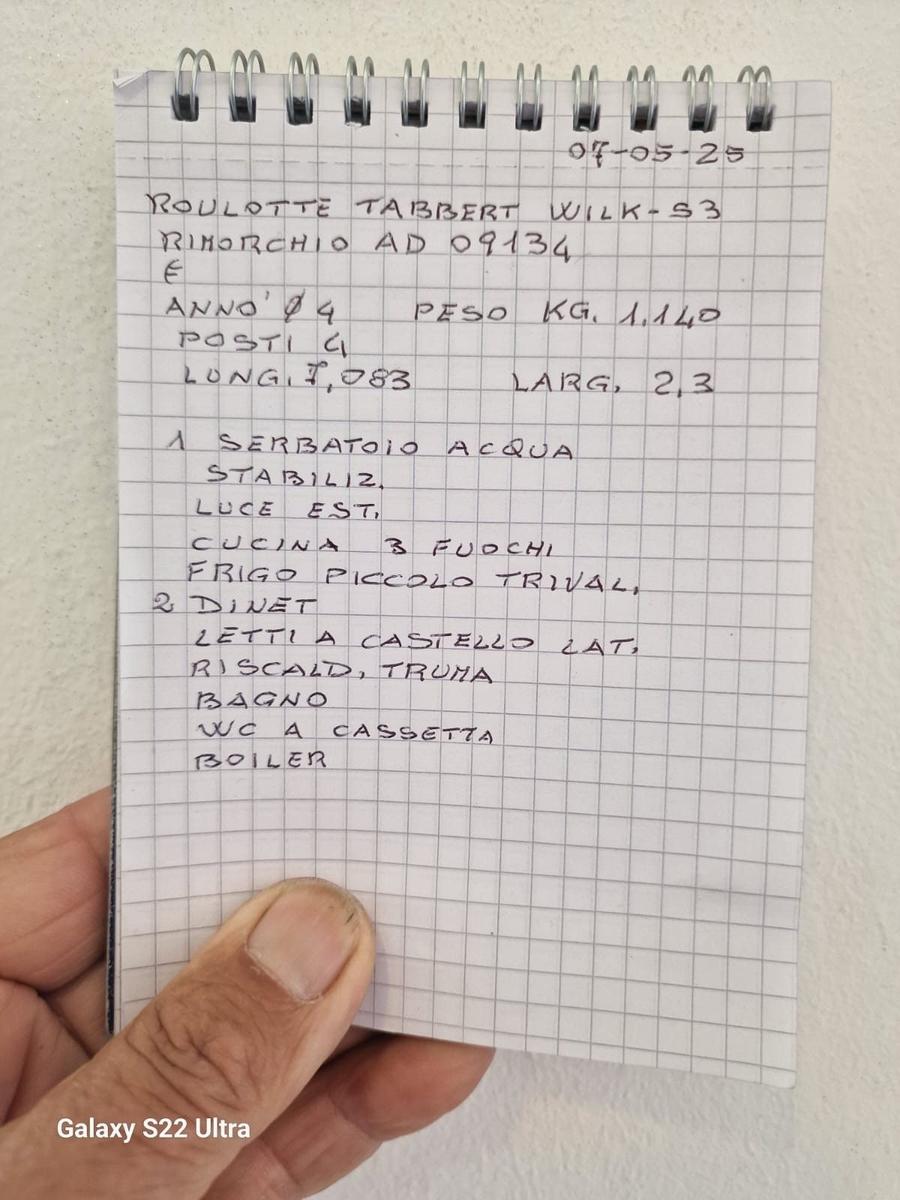 07-05-25
ROULOTTE TABBERT WILK-S3
RIMORCHIO AD 09134
€
ANNO' Ø4 PESO KG. 1.140
POSTI 4
LONG. 7,083 LARG. 2,3
1 SERBATOIO ACQUA
STABILIZ.
LUCE EST.
CUCINA 3 FUOCHI
FRIGO PICCOLO TRIVAL.
2 DINET
LETTI A CASTELLO LAT.
RISCALD, TRUMA
BAGNO
WC A CASSETTA
BOILER
Galaxy S22 Ultra